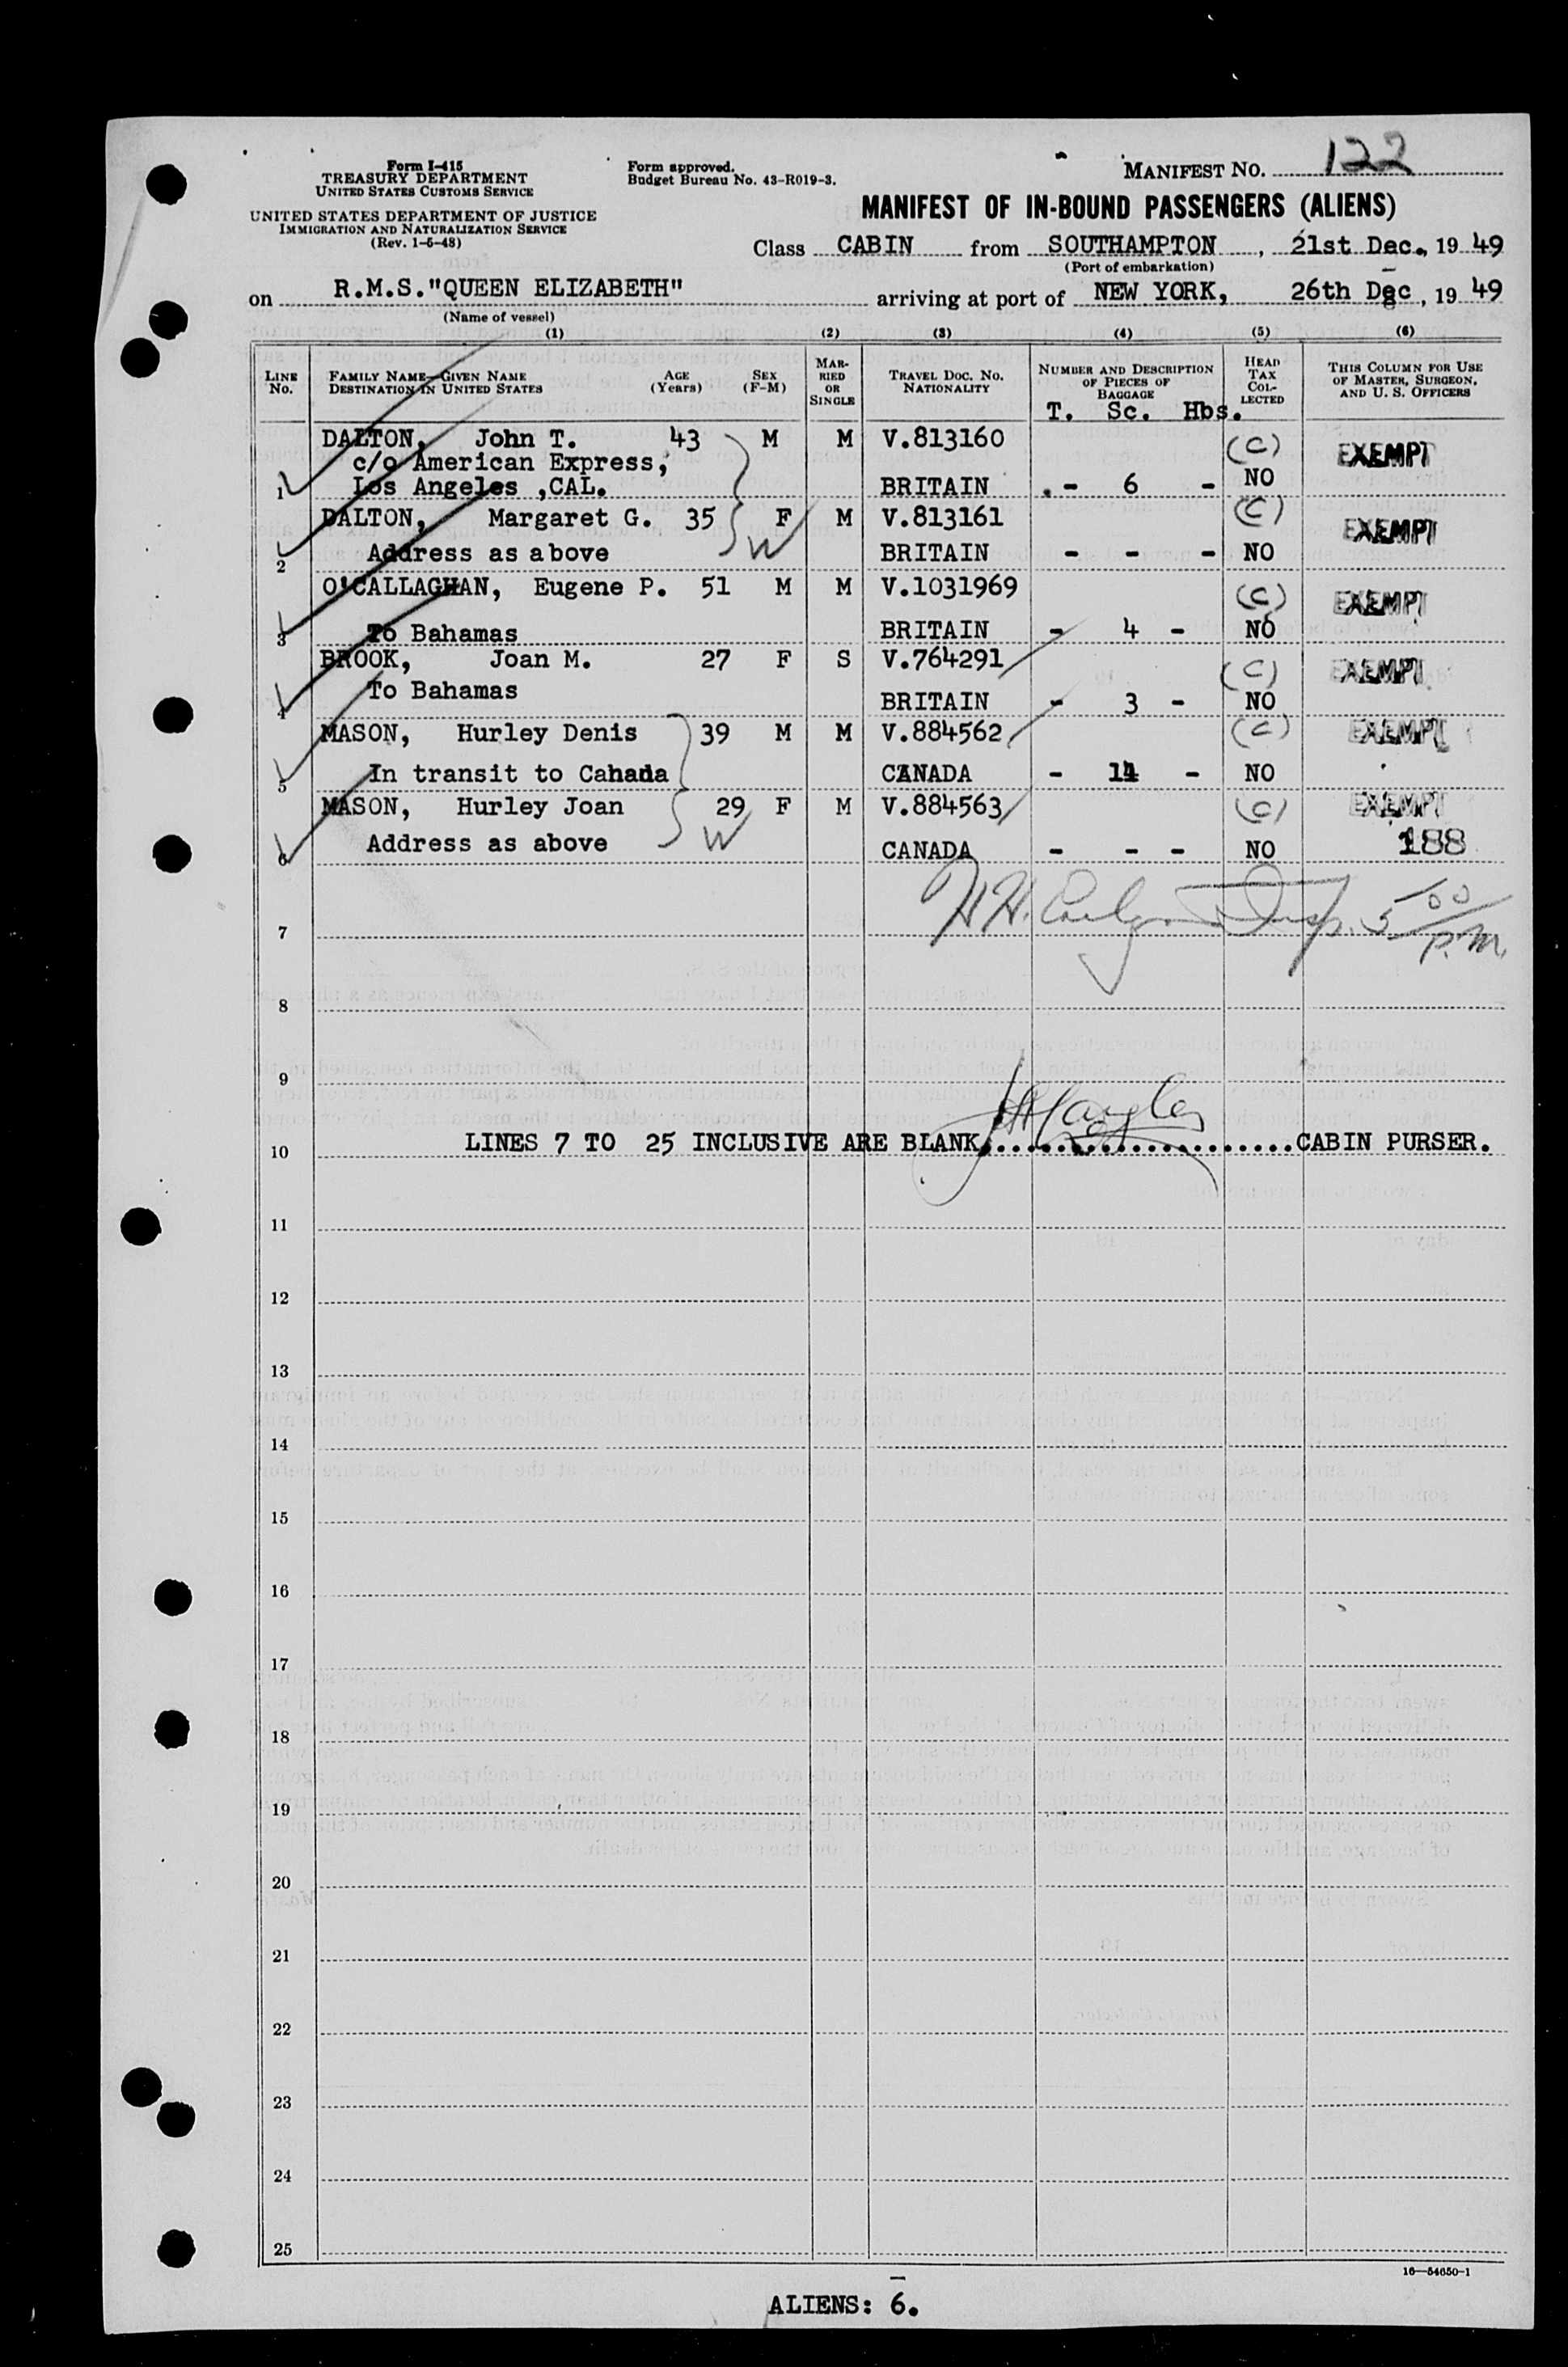 Form I-415
TREASURY DEPARTMENT
UNITED STATES CUSTOMS SERVICE
UNITED STATES DEPARTMENT OF JUSTICE
IMMIGRATION AND NATURALIZATION SERVICE
(Rev. 1-5-48)
Form approved.
Budget Bureau No. 43-R019-3.
MANIFEST NO. 122
MANIFEST OF IN-BOUND PASSENGERS (ALIENS)
Class CABIN from SOUTHAMPTON, 21st Dec., 19 49
(Port of embarkation)
on R.M.S."QUEEN ELIZABETH" arriving at port of NEW YORK, 26th Dec, 19 49
(Name of vessel)
(1) (2) (3) (4) (5) (6)
LINE No. FAMILY NAME—GIVEN NAME DESTINATION IN UNITED STATES AGE (Years) SEX (F-M) MARRIED OR SINGLE TRAVEL DOC. NO. NATIONALITY NUMBER AND DESCRIPTION OF PIECES OF BAGGAGE HEAD TAX COLLECTED THIS COLUMN FOR USE OF MASTER, SURGEON, AND U. S. OFFICERS
T. Sc. Hbs.
DALTON, John T. 43 M M V.813160 (C) EXEMPT
c/o American Express,
1 Los Angeles ,CAL. BRITAIN - 6 - NO
DALTON, Margaret G. 35 F M V.813161 (C) EXEMPT
2 Address as above W BRITAIN - - - NO
O'CALLAGHAN, Eugene P. 51 M M V.1031969 (C) EXEMPT
3 To Bahamas BRITAIN - 4 - NO
BROOK, Joan M. 27 F S V.764291 (C) EXEMPT
4 To Bahamas BRITAIN - 3 - NO
MASON, Hurley Denis 39 M M V.884562 (C) EXEMPT
5 In transit to Canada CANADA - 14 - NO
MASON, Hurley Joan 29 F M V.884563 (C) EXEMPT
6 Address as above W CANADA - - - NO 188
7 H. Insp. 5 00 P.M.
8
9
10 LINES 7 TO 25 INCLUSIVE ARE BLANK......................CABIN PURSER.
11
12
13
14
15
16
17
18
19
20
21
22
23
24
25
16—54650-1
ALIENS: 6.